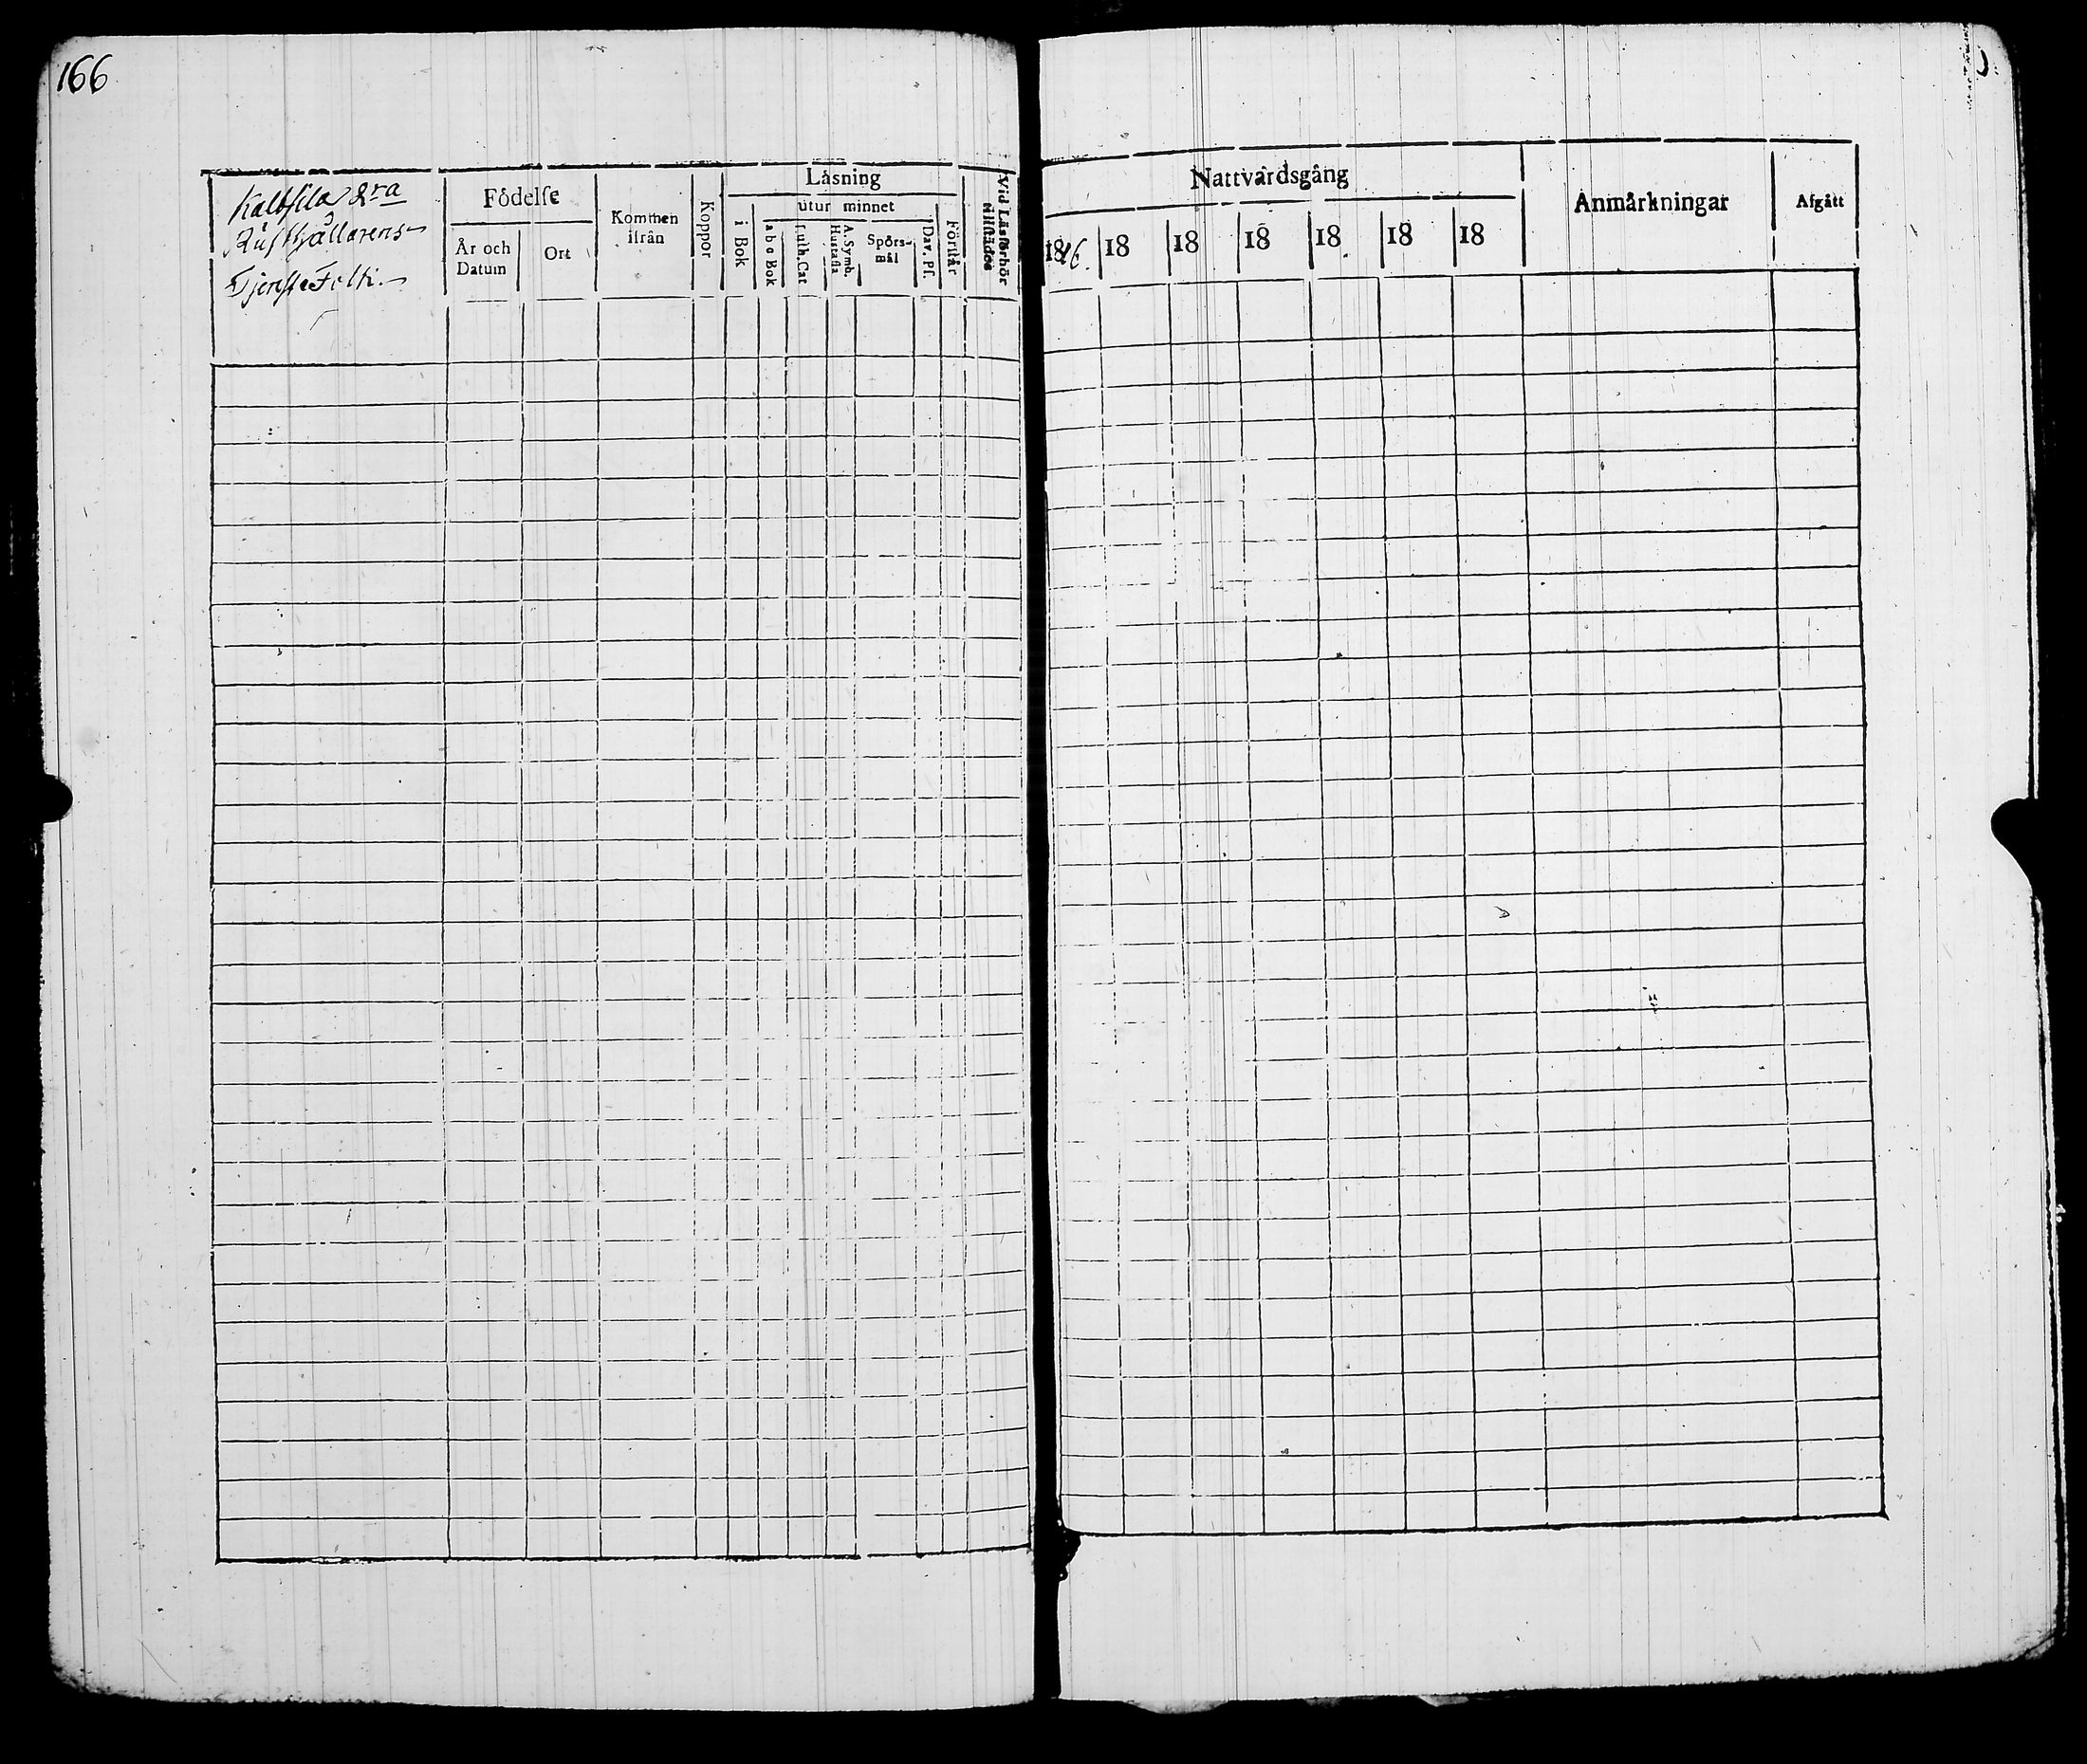 166
Kalbsila 2ra
Rusthållarens
Tjenste Folk.
Fôdelſe
År och Datum
Ort
Kommen ifrån
Koppor
Lâsning
i Bok
utur minnet
a b c Bok
Luth. Cat
A. Symb. Hustafla
Spörs-
mål
Dav. Pſ.
Förſtår
Vid Läsförhör tillstädes
Nattvårdsgång
1816.
18
18
18
18
18
18
Anmårkningar
Afgått